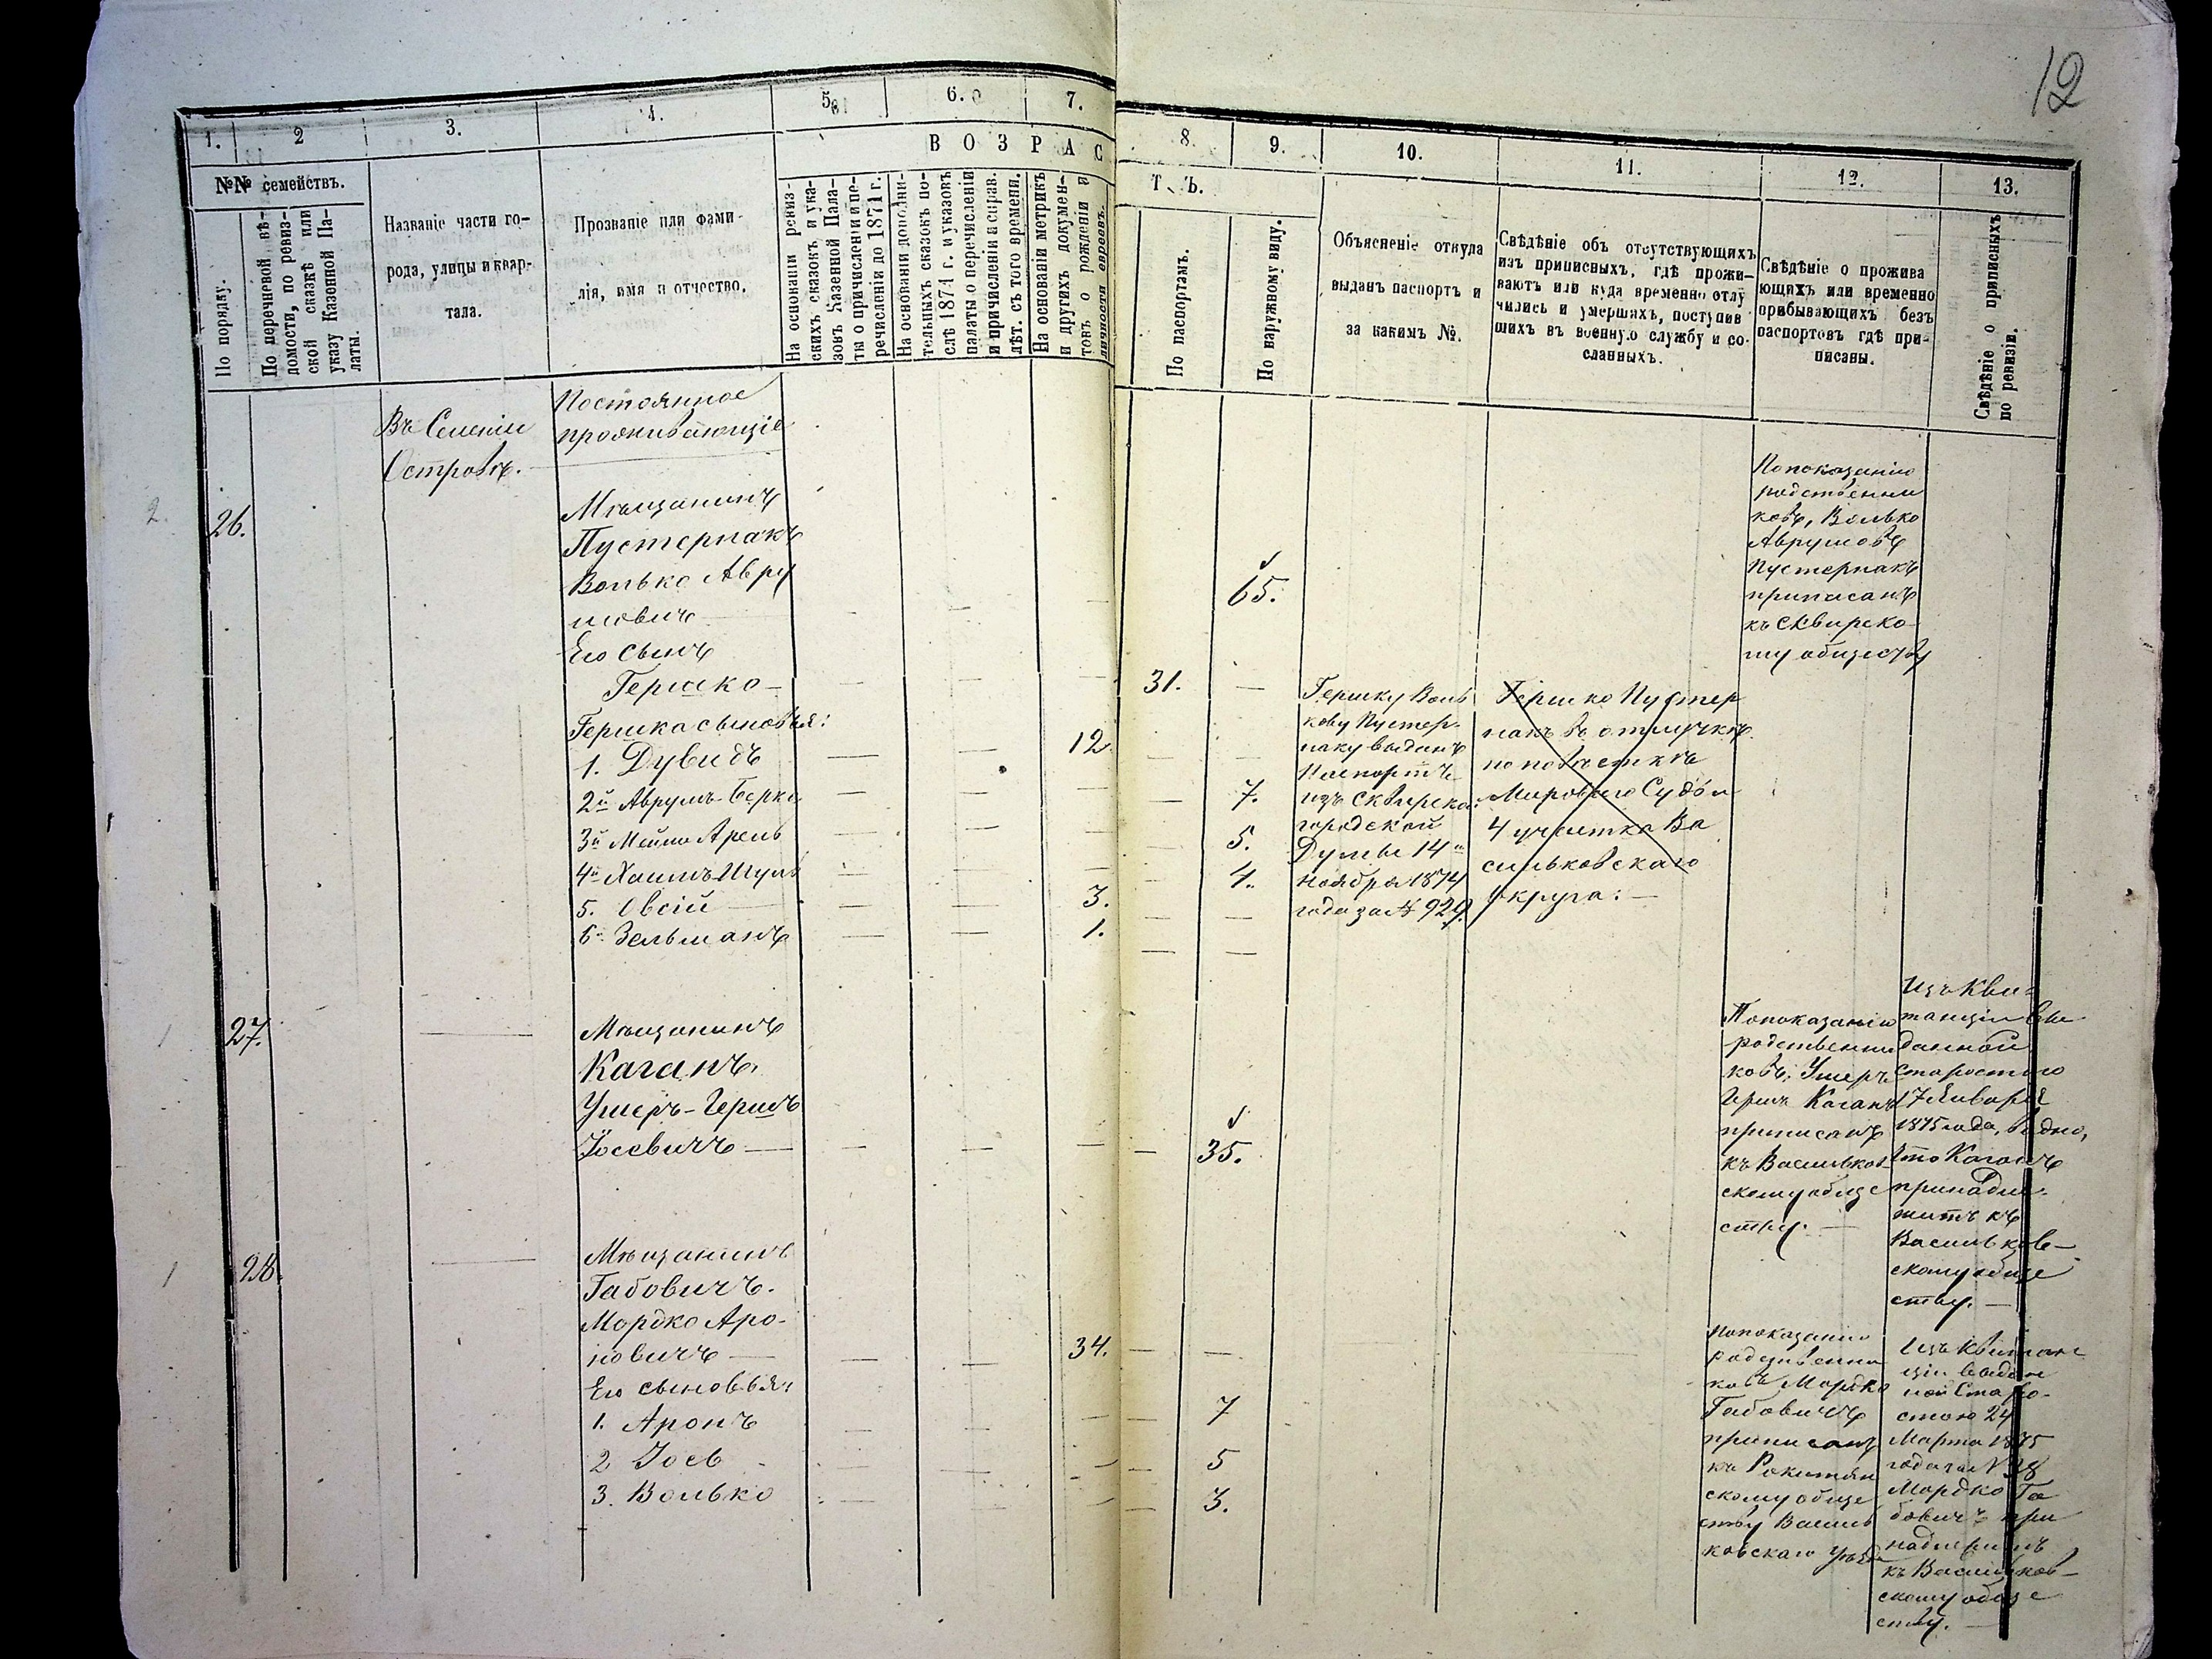 12
1.
2
3.
4.
5.
6.
7.
8.
9.
10.
11.
12.
13.
№№ семействъ.
В О З Р А С
Т Ъ.
По порядку.
По перечневой вѣ-
домости, по ревиз-
ской сказкѣ или
указу Казенной Па-
латы.
Названіе части го-
рода, улицы и квар-
тала.
Прозваніе или фами-
лія, имя и отчество.
На основаніи ревиз-
скихъ сказокъ и ука-
зовъ Казенной Пала-
ты о причисленіи и пе-
речисленіи до 1871 г.
На основаніи дополни-
тельныхъ сказокъ по-
слѣ 1871 г. и указовъ
палаты о перечисленіи
и причисленіи и справ.
лѣт. съ того времени.
На основаніи метрикъ
и другихъ докумен-
товъ о рожденіи и
личности евреевъ.
По паспортамъ.
По наружному виду.
Объясненіе откуда
выданъ паспортъ и
за какимъ №.
Свѣдѣніе объ отсутствующихъ
изъ приписныхъ, гдѣ прожи-
ваютъ или куда временно отлу
чились и умершихъ, поступив
шихъ въ военную службу и со-
сланныхъ.
Свѣдѣніе о прожива
ющихъ или временно
прибывающихъ безъ
паспортовъ гдѣ при-
писаны.
Свѣдѣніе о приписныхъ
по ревизіи.
Въ Селеніи
Островѣ.
Постоянное
проживающіе
2.
26.
Мѣщанинъ
Пустернакъ
Волько Авру
мовичъ
65.
Его сынъ
Гершко
31.
Гершка сыновья:
1. Дувидъ
12
2й Аврумъ-Берко
7.
3й Арель
5.
4й Хаимъ-Шуль
4.
5. Овсій
3.
6. Зельманъ
1.
Гершку Воль
кову Пустер-
наку выданъ
Паспортъ
изъ Сквирско:
городской
Думы 14го
ноября 1874
года за № 929.
Гершко Пустер
накъ въ отлучкѣ
по повѣсткѣ
Мироваго Судьи
4 участка Ва
сильковскаго
округа: —
По показанію
родственни
ковъ, Волько
Аврумовъ
Пустернакъ
приписанъ
къ Сквирско-
му обществу
1
27.
Мѣщанинъ
Каганъ,
Ушеръ-Гершъ
Іосевичъ —
35.
По показанію
родственни
ковъ, Ушеръ
Гершъ Каганъ
приписанъ
къ Васильков-
скому обще
ству. —
Изъ Кви-
танціи вы-
данной
Старостою
17 Января
1875 года, видно,
что Каганъ
принадле-
житъ къ
Васильков-
скому обще
ству. —
1
28.
Мѣщанинъ
Габовичъ.
Мордко Аро-
новичъ —
34.
Его сыновья:
1. Аронъ
7
2. Іось
5
3. Волько
3.
По показанію
родственни
ковъ Мордко
Габовичъ
приписанъ
къ Рокитян
скому обще
ству Василь
ковскаго уѣзда
Изъ квитан
ціи выдан
ной Старо-
стою 24
Марта 1875
года за № 28
Мордко Га
бовичъ при
надлежитъ
къ Васильков-
скому обще
ству. —